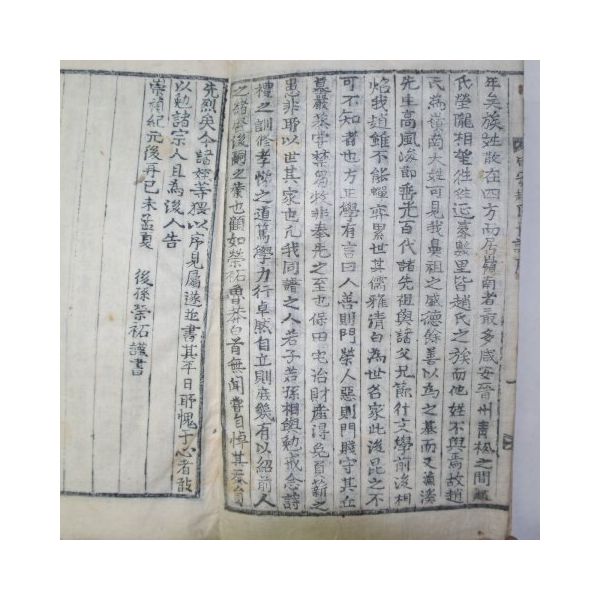 年矣族姓散在四方而居嶺南者最多咸安晉州靑松之間趙
氏榮隴相望往往近家數里皆趙氏之族而他姓不與焉故趙
氏爲嶺南大姓可見我鼻祖之盛德餘善以爲之基而又漁溪
先生高風淸節聳光百代諸先祖與諸父兄節行文學前後相
焰我趙雖不能蟬冕世其儒雅淸白爲世名家此後昆之不
可不知者也方正學有言曰人善則門榮人惡則門賤守其丘
墓嚴祭嘗禁芻牧非奉先之至也保田宅治財產得免負薪之
愚非耶以世其家也凡我同譜之人若子若孫相與勉戒念詩
禮之訓修孝悌之道篤學力行卓然自立則庶幾有以紹前人
之緖啓後嗣之業也顧如榮祏曹莽白首無聞嘗自悼其忝負
先烈矣今諸姪等猥以序見屬遂並書其平日耶愧于心者敢
以勉諸宗人且爲後人告
崇禎紀元後再己未孟夏 後孫榮祏謹書